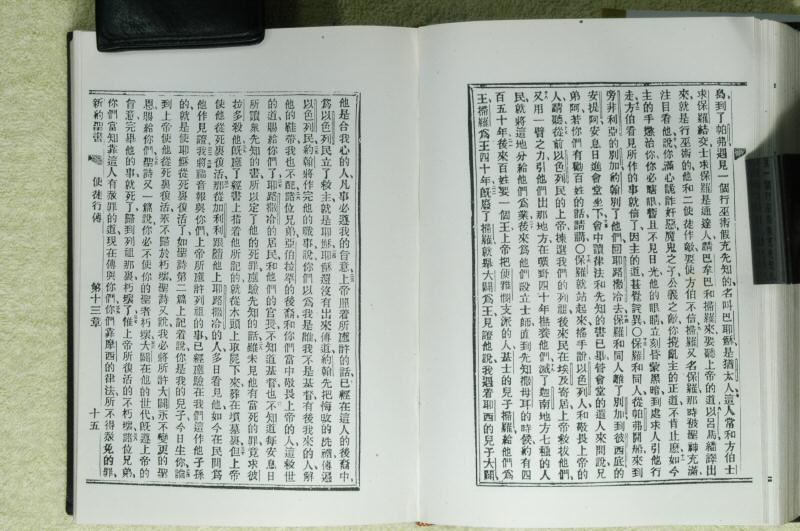 島到了帕弗遇見一個行巫術假充先知的名叫巴耶穌是猶太人這人常和方伯士
求保羅結交士求保羅是通達人請巴拿巴和掃羅來要聽上帝的道以呂馬繙譯出
來就是行巫術的他和二使徒作敵要使方伯不信掃羅又名保羅那時被聖神充滿
注目看他說你滿心詭詐奸惡魔鬼之子公義之敵你攪亂主的正道不肯止麼如今
主的手懲治你你必瞎眼暫且不見日光他的眼睛立刻昏蒙黑暗到處求人引他行
走方伯看見所作的事就信了因主的道甚覺詫異〇保羅和同人從帕弗開船來到
旁非利亞的別加約翰別了他們回耶路撒冷去保羅和同人離了別加到彼西底的
安提阿安息日進會堂坐下會中讀律法和先知的書已畢管會堂的道人來問說兄
弟阿若你們有勸百姓的話請講〇保羅就站起來搖手說以色列人和敬畏上帝的
人請聽從前以色列民的上帝揀選我們的列祖後來民在埃及寄居上帝救拔他們
又用一臂之力引他們出那地方在曠野四十年撫養他們滅了迦南地方七種的人
民就將這地分給他們爲業後來爲他們設立士師直到先知撒母耳的時候約有四
百五十年後來百姓要一個王上帝把便雅憫支派的人基士的兒子掃羅給他們爲
王掃羅爲王四十年既廢了掃羅就舉大闢爲王見證他說我遇着耶西的兒子大闢
他是合我心的人凡事必遵我的旨意上帝照着所應許的話已經在這人的後裔中
爲以色列民立了救主就是耶穌耶穌還沒有出來傳道約翰先把悔改的洗禮傳遍
以色列民約翰將作完他的職事說你們以爲我是誰我不是基督有後我來的人解
他的鞋帶我也不配諸位兄弟亞伯拉罕的後裔和你們當中敬畏上帝的人這救世
的道賜給你們了耶路撒冷的居民和他們的官長不知道基督也不知道每安息日
所讀衆先知的書所以定了他的死罪應驗先知的話雖未見他有當死的罪竟求彼
拉多殺他既應了經書上指着他所記的就從木頭上取屍下來葬在墳墓裏但上帝
使他從死裏復活那從加利利跟隨他上耶路撒冷的人多日看見他如今在民間爲
他作見證我將福音報與你們上帝所應許列祖的事已經應驗在我們這作他子孫
的就是使耶穌從死裏復活了如聖詩第二篇上記着說你是我的兒子今日生你論
到上帝使他從死裏復活永不歸於朽壞聖詩又說我必將所許大闢永不變更的聖
恩賜給你們聖詩又一篇說你必不使你的聖者朽壞大闢在他的世代既遵上帝的
旨意完畢他的事就死了歸到列祖那裏朽壞了惟上帝所復活的不朽壞諸位兄弟
你們當知靠這人有赦罪的道現在傳與你們你們靠摩西的律法所不得赦免的罪
新約聖書 使徒行傳 第十三章 十五